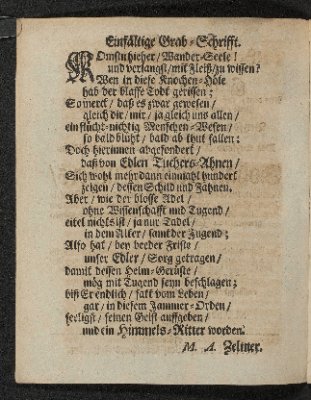 Einfältige Grab-Schrifft.
KOmstu hieher / Wander-Seele!
und verlangst / mit Fleiß / zu wissen?
Wen in diese Knochen-Höle
hab der blasse Todt gerissen;
So merck / daß es zwar gewesen /
gleich dir / mir / ja gleich uns allen /
ein flücht-nichtig Menschen-Wesen /
so bald blüht / bald ab thut fallen:
Doch hierinnen abgesondert /
daß von Edlen Tuchers-Ahnen /
Sich wohl mehr dann einmahl hundert
zeigen / dessen Schild und Fahnen.
Aber / wie der blosse Adel /
ohne Wissenschafft und Tugend /
eitel nichts ist / ja nur Tadel /
in dem Alter / samt der Jugend;
Also hat / bey beeder Friste /
unser Edler / Sorg getragen /
damit dessen Helm-Gerüste /
mög mit Tugend seyn beschlagen;
biß Er endlich / satt vom Leben /
gar / in diesem Jammer-Orden /
seeligst / seinen Geist auffgeben /
und ein Himmels-Ritter worden.
M. A. Zeltner.